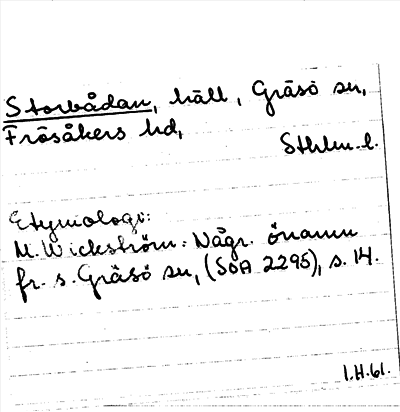 Storbådan, häll, Gräsö sn,
Frösåkers hd,
Sthlm. l.
Etymologi:
M. Wickström: Någr. önamn
fr. s. Gräsö sn, (SOA 2295), s. 14.
1.H.61.